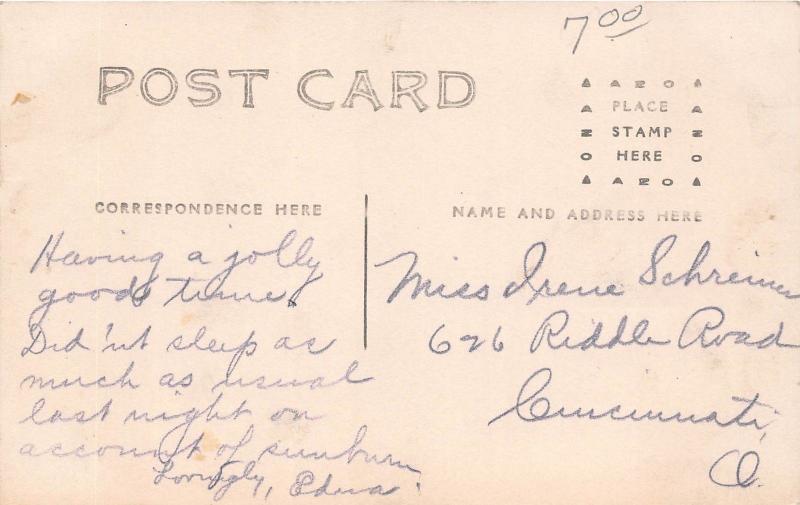 7.00
POST CARD
AZO
PLACE
STAMP
HERE
AZO
CORRESPONDENCE HERE
Having a jolly
good time.
Did'nt sleep as
much as usual
last night on
account of sunburn
Lovingly, Edna.
NAME AND ADDRESS HERE
Miss Irene Schreiner
626 Riddle Road
Cincinnati,
O.